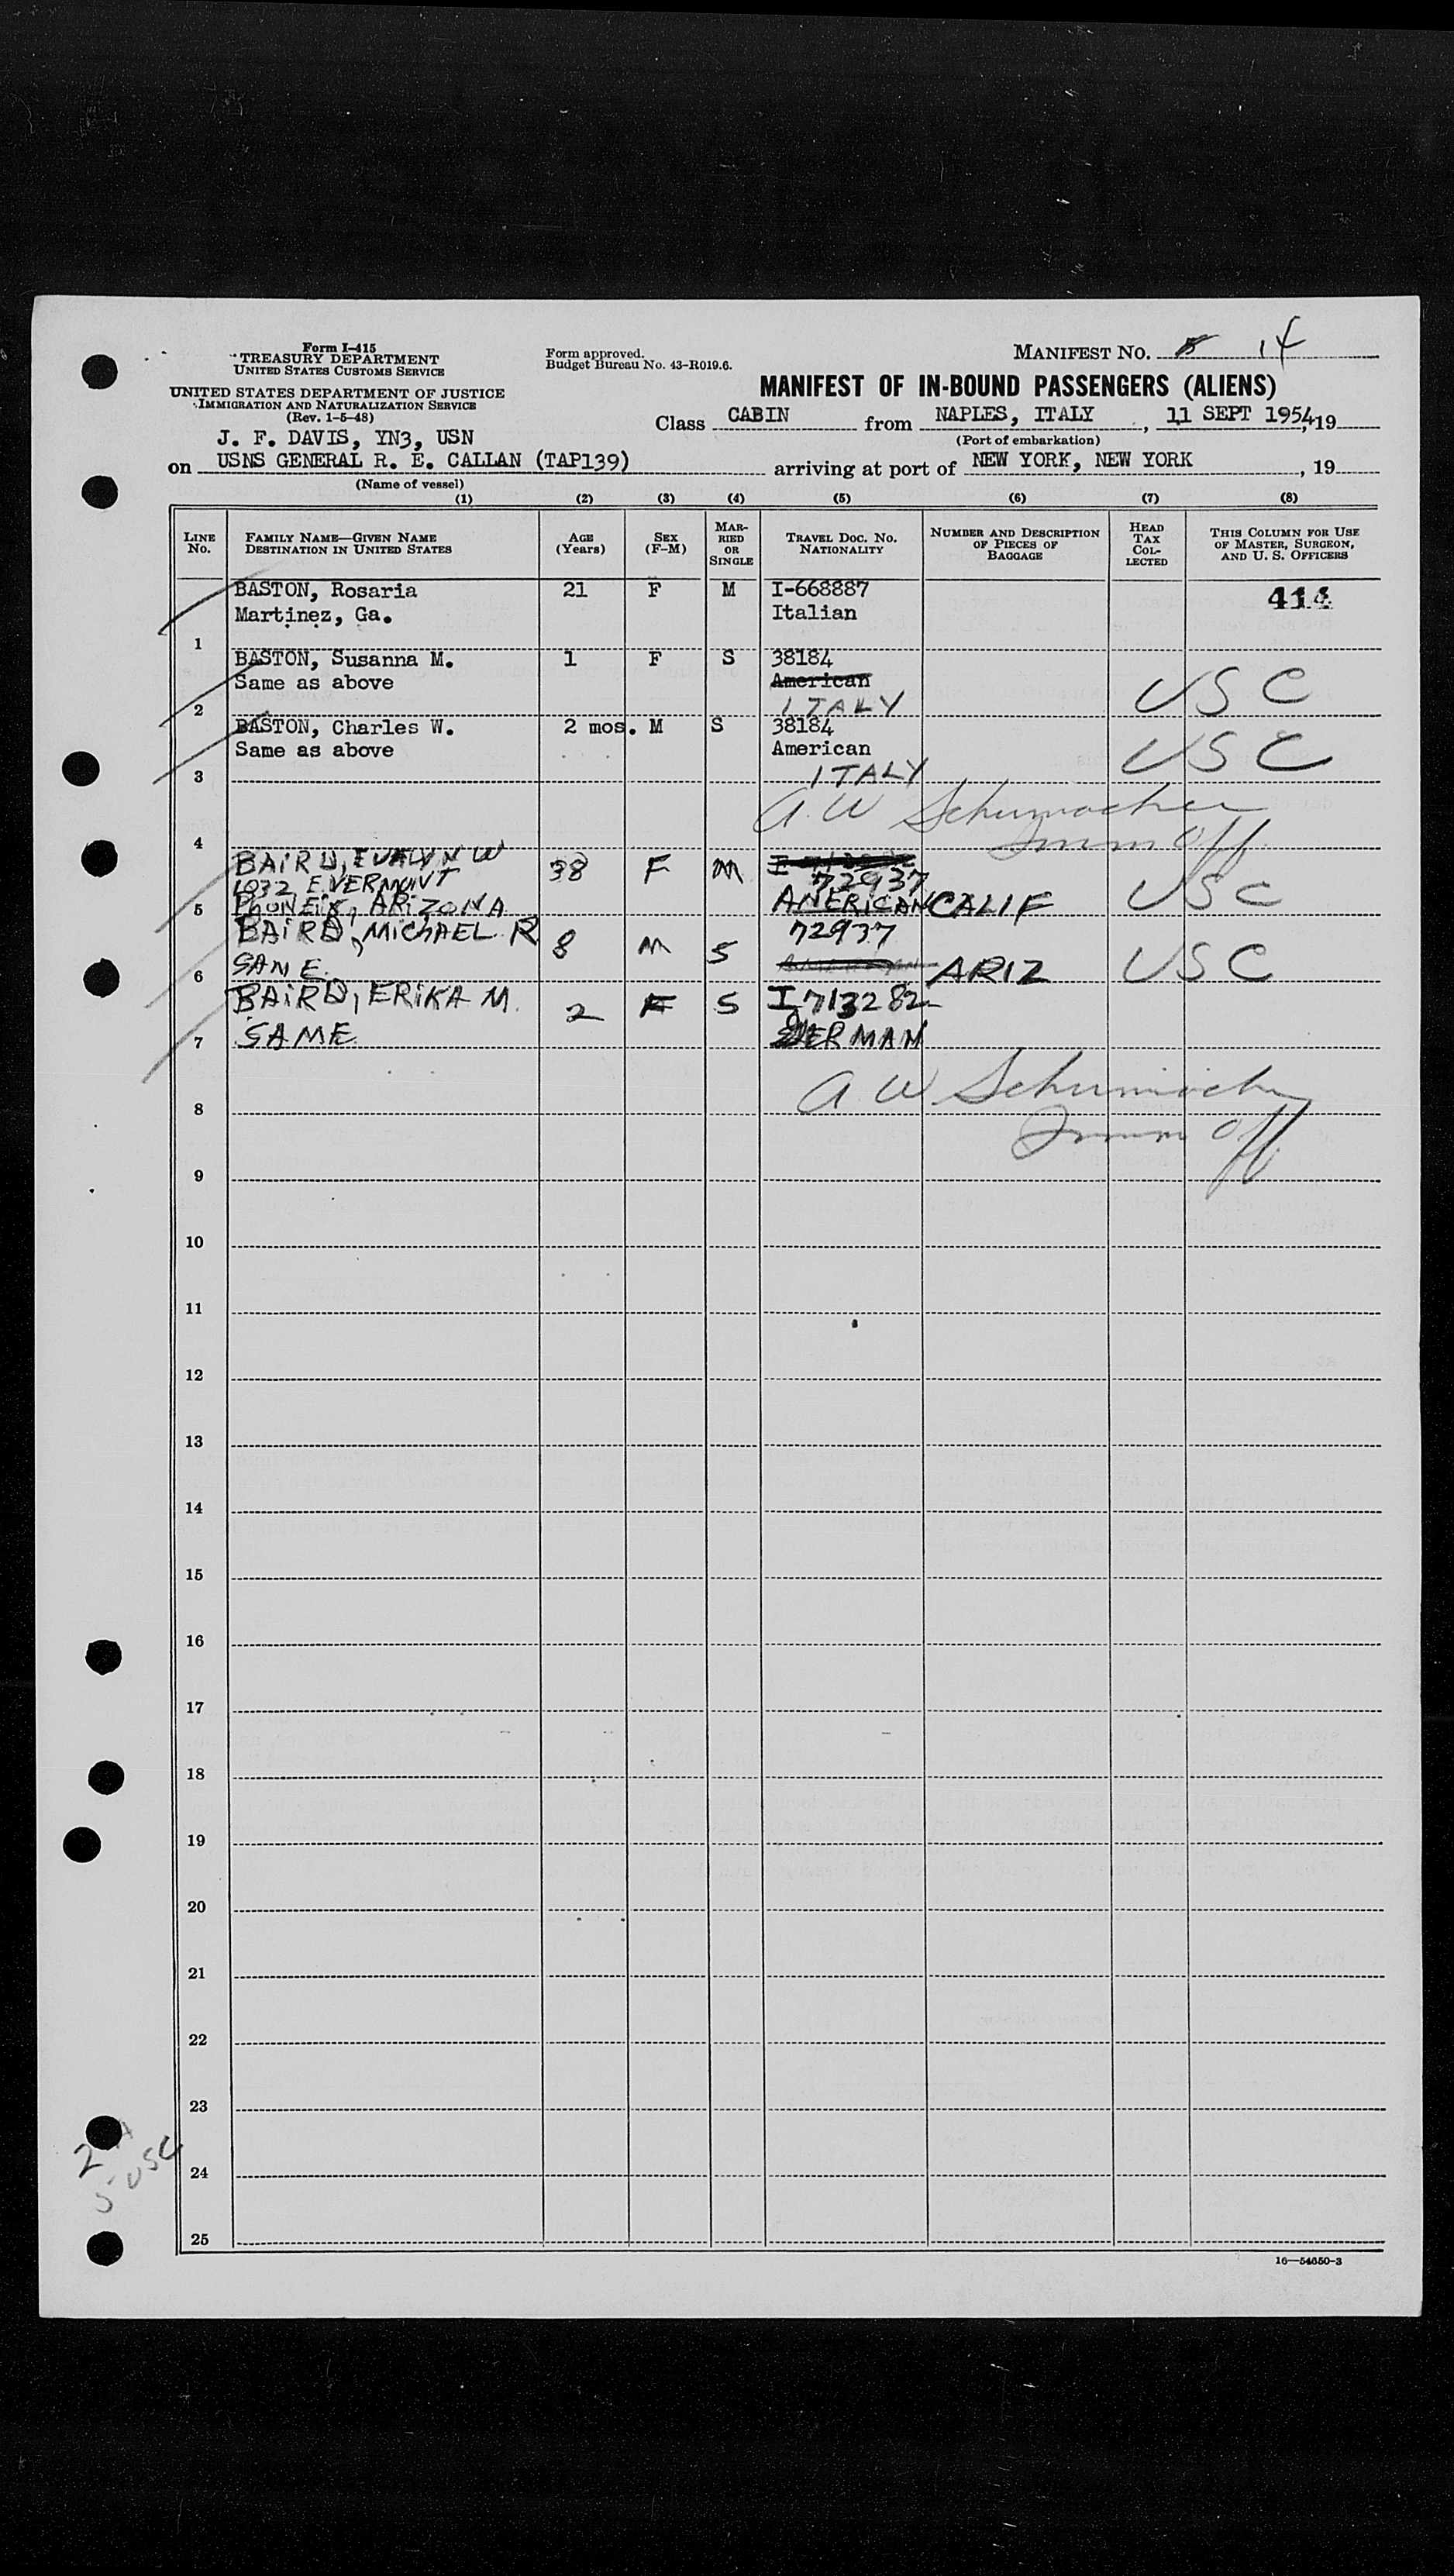 Form I-415
TREASURY DEPARTMENT
UNITED STATES CUSTOMS SERVICE
UNITED STATES DEPARTMENT OF JUSTICE
IMMIGRATION AND NATURALIZATION SERVICE
(Rev. 1-5-48)
Form approved.
Budget Bureau No. 43-R019.6.
MANIFEST NO. 14
MANIFEST OF IN-BOUND PASSENGERS (ALIENS)
Class CABIN from NAPLES, ITALY, 11 SEPT 1954, 19
(Port of embarkation)
J. F. DAVIS, YN3, USN
on USNS GENERAL R. E. CALLAN (TAP139) arriving at port of NEW YORK, NEW YORK, 19
(Name of vessel)
(1) (2) (3) (4) (5) (6) (7) (8)
LINE No.
FAMILY NAME—GIVEN NAME
DESTINATION IN UNITED STATES
AGE (Years)
SEX (F-M)
MARRIED OR SINGLE
TRAVEL DOC. NO.
NATIONALITY
NUMBER AND DESCRIPTION OF PIECES OF BAGGAGE
HEAD TAX COLLECTED
THIS COLUMN FOR USE OF MASTER, SURGEON, AND U. S. OFFICERS
BASTON, Rosaria 21 F M I-668887 414
Martinez, Ga. Italian
1
BASTON, Susanna M. 1 F S 38184
Same as above American USC
2 ITALY
BASTON, Charles W. 2 mos. M S 38184
Same as above American USC
3 ITALY
A. W Schumacher
4 Imm Off.
BAIRD, EVALYN W 38 F M
1032 E. VERMONT 72937
5 PhONEiX, ARiZONA AMERiCAN CALIF USC
BAIRD, MiChAEL R 8 M S 72937
6 SAME. ARIZ USC
BAIRD, ERiKA M. 2 F S I 713282
7 SAME GERMAN
A W Schumacher
8
Imm Off
9
10
11
12
13
14
15
16
17
18
19
20
21
22
23
24
25
2 A
5 USC
16—54650-3